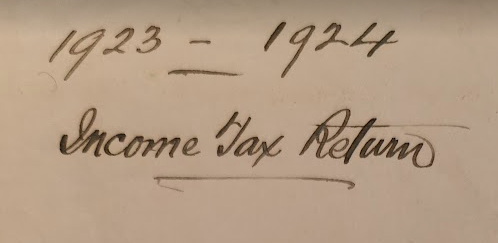 1923 - 1924
Income Tax Return